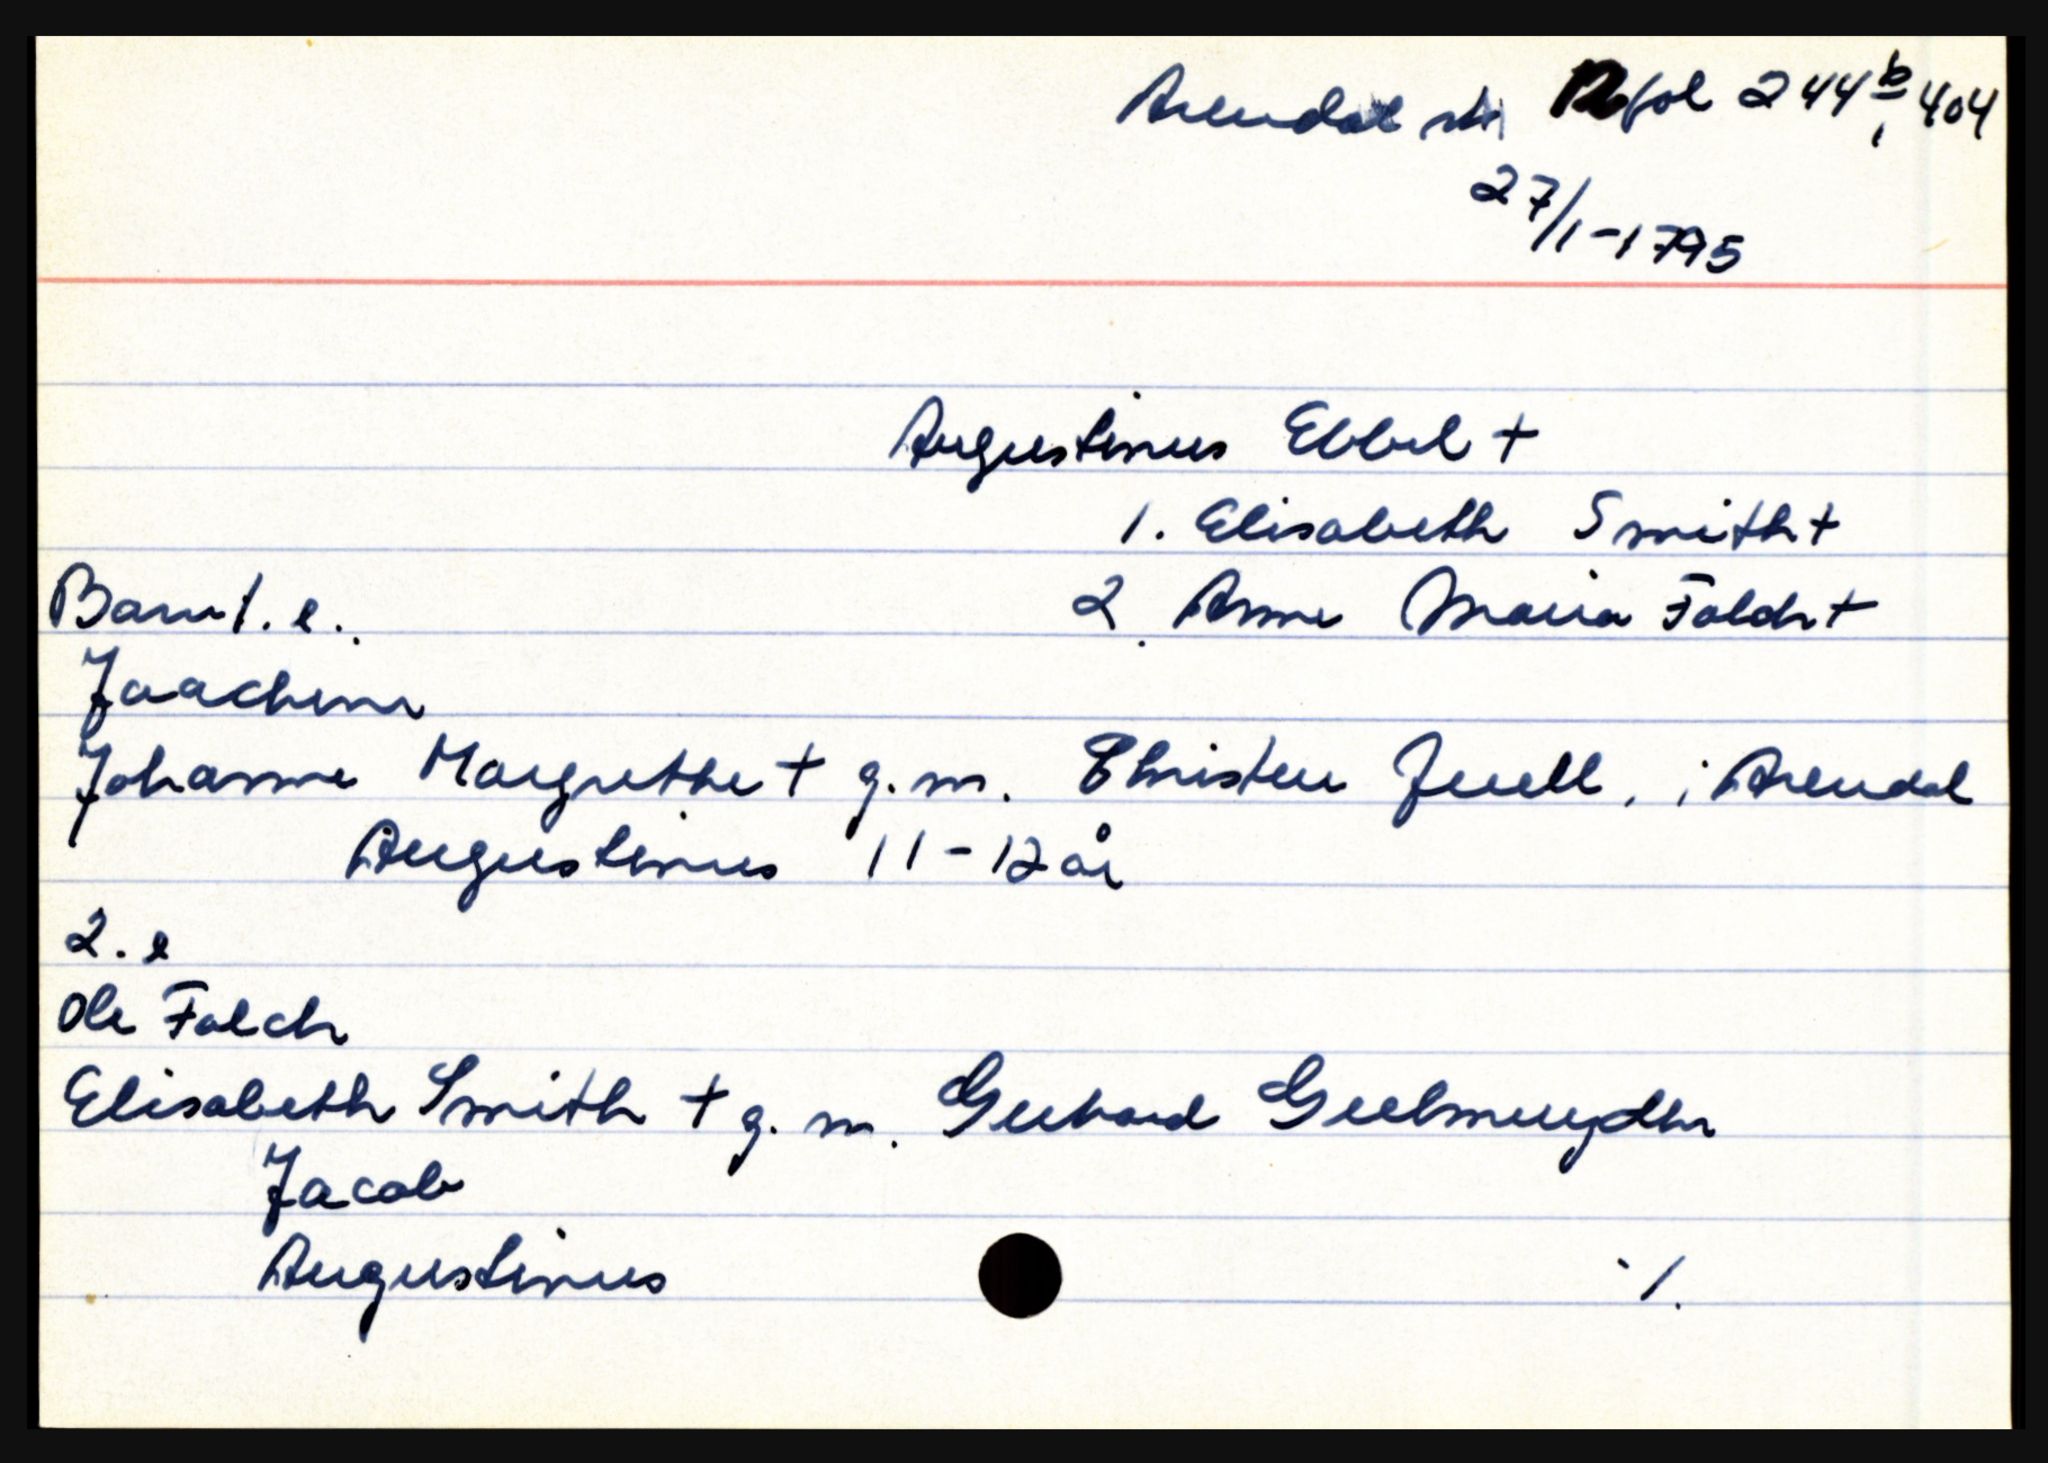 Arendal sk 12 fol 244 b, 404
27/1-1795
Augustinus Ebbel +
1. Elisabeth Smith +
Barn 1. e.
2. Anne Maria Falch +
Joachim
Johanne Margrethe + g.m. Christen Juell, i Arendal
Augustinus 11-12 år
2. e
Ole Falch
Elisabeth Smith + g. m. Gerhard Geelmuyden
Jacob
Augustinus
./.